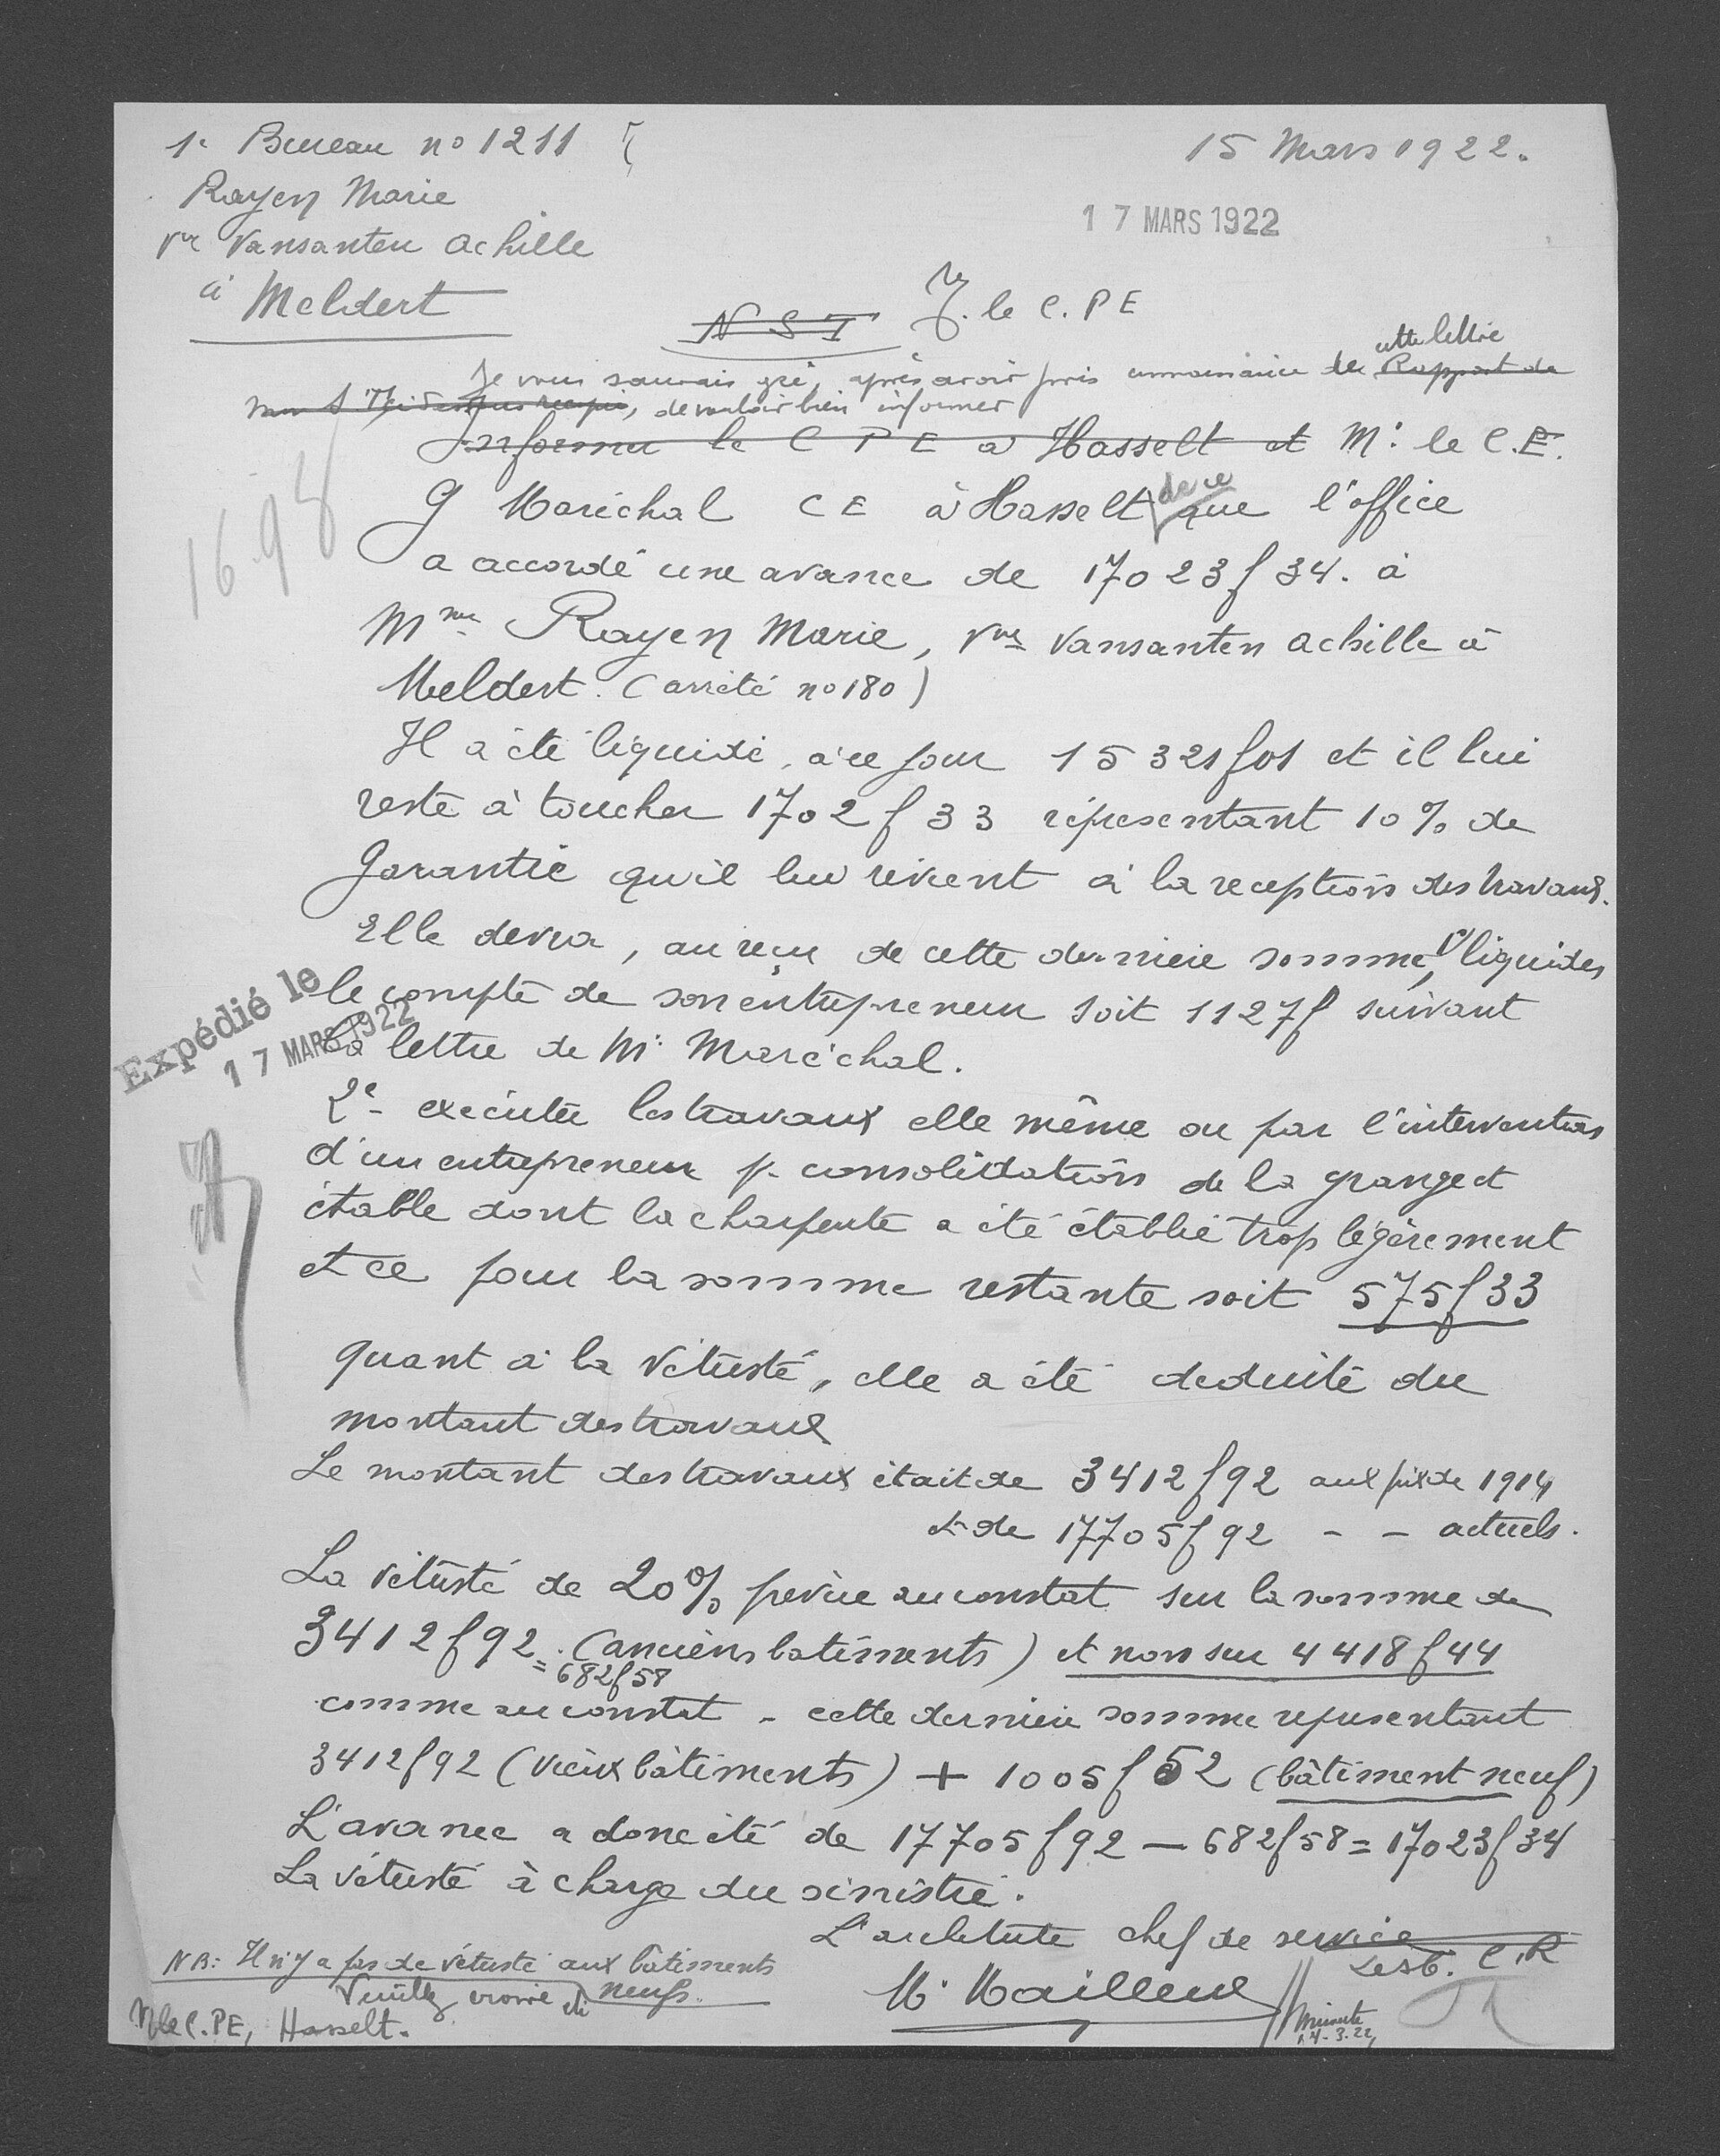 1e Bureau no 1211
15 Mars 1922.
Rayen Marie
17 MARS 1922
Vve Vansanten Achille
à Meldert
N S I M. le C. P E
cette lettre
Je vous saurais gré, après avoir pris connaissance de Rapport de
de vouloir bien informer
Informer le C P E à Hasselt et Mr le C.E.
de ce
G Maréchal C E à Hasselt que l'office
16.98
a accordé une avance de 17023f34. à
Mme Rayen Marie, Vve Vansanten Achille à
Meldert. (arrêté no 180)
Il a été liquidé, à ce jour 15321f01 et il lui
reste à toucher 1702f33 répresentant 10% de
Garantie qu'il lui revient à la reception des travaux.
Elle devra, au reçu de cette dernière somme, 1° liquider
le compte de son entrepreneur soit 1127f suivant
Expédié le
17 MARS 1922
la lettre de Mr Maréchal.
2e - executer les travaux elle même ou par l'intervention
d'un entrepreneur p. consolidation de la grange et
étable dont la charpente a été établie trop légèrement
et ce pour la somme restante soit 575f33
quant à la Vétusté, elle a été deduite du
montant des travaux
Le montant des travaux était de 3412f92 aux prix de 1914
et de 17705f92 - - actuels.
La vétusté de 20% prévue au constat sur la somme de
3412f92 = (anciens batiments) et non sur 4418f44
= 682f58
comme au constat - cette dernière somme representant
3412f92 (vieux bâtiments) + 1005f52 (bâtiment neuf)
L'avance a donc été de 17705f92 — 682f58 = 17023f34
La vétusté à charge du sinistré.
L'architecte chef de service
NB: Il n'y a pas de vétusté aux bâtiments
neufs.
Le St. C.R
Veuillez croire
M. Mailleux
M le C. PE, Hasselt.
Minute
14-3.22